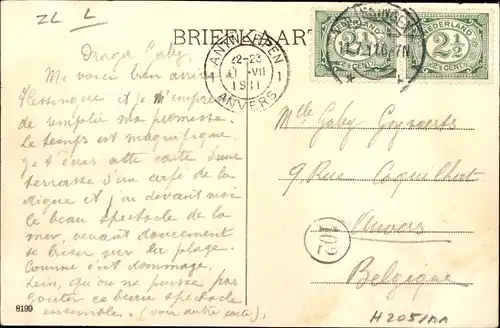 ZL L
BRIEFKAART
Draga Gaby,
Me voici bien arrivé
Flessingue et je m'empresse
de remplir ma promesse.
Le temps est magnifique
je t'écris cette carte d'une
terrasse d'un café de la
digue et j'ai devant moi
le beau spectacle de la
mer, venant doucement
se briser sur la plage.
Comme c'est dommage,
hein, qu'on ne puisse pas
goûter ce beau spectacle
ensemble. (voir autre carte).
8199
ANTWERPEN
22-23
VII
1911
ANVERS
1 1
NEDERLAND
2½
(2½ CENT)
NEDERLAND
2½
(2½ CENT)
Mlle Gaby
9, Rue
Anvers
Belgique
60
H2051AA